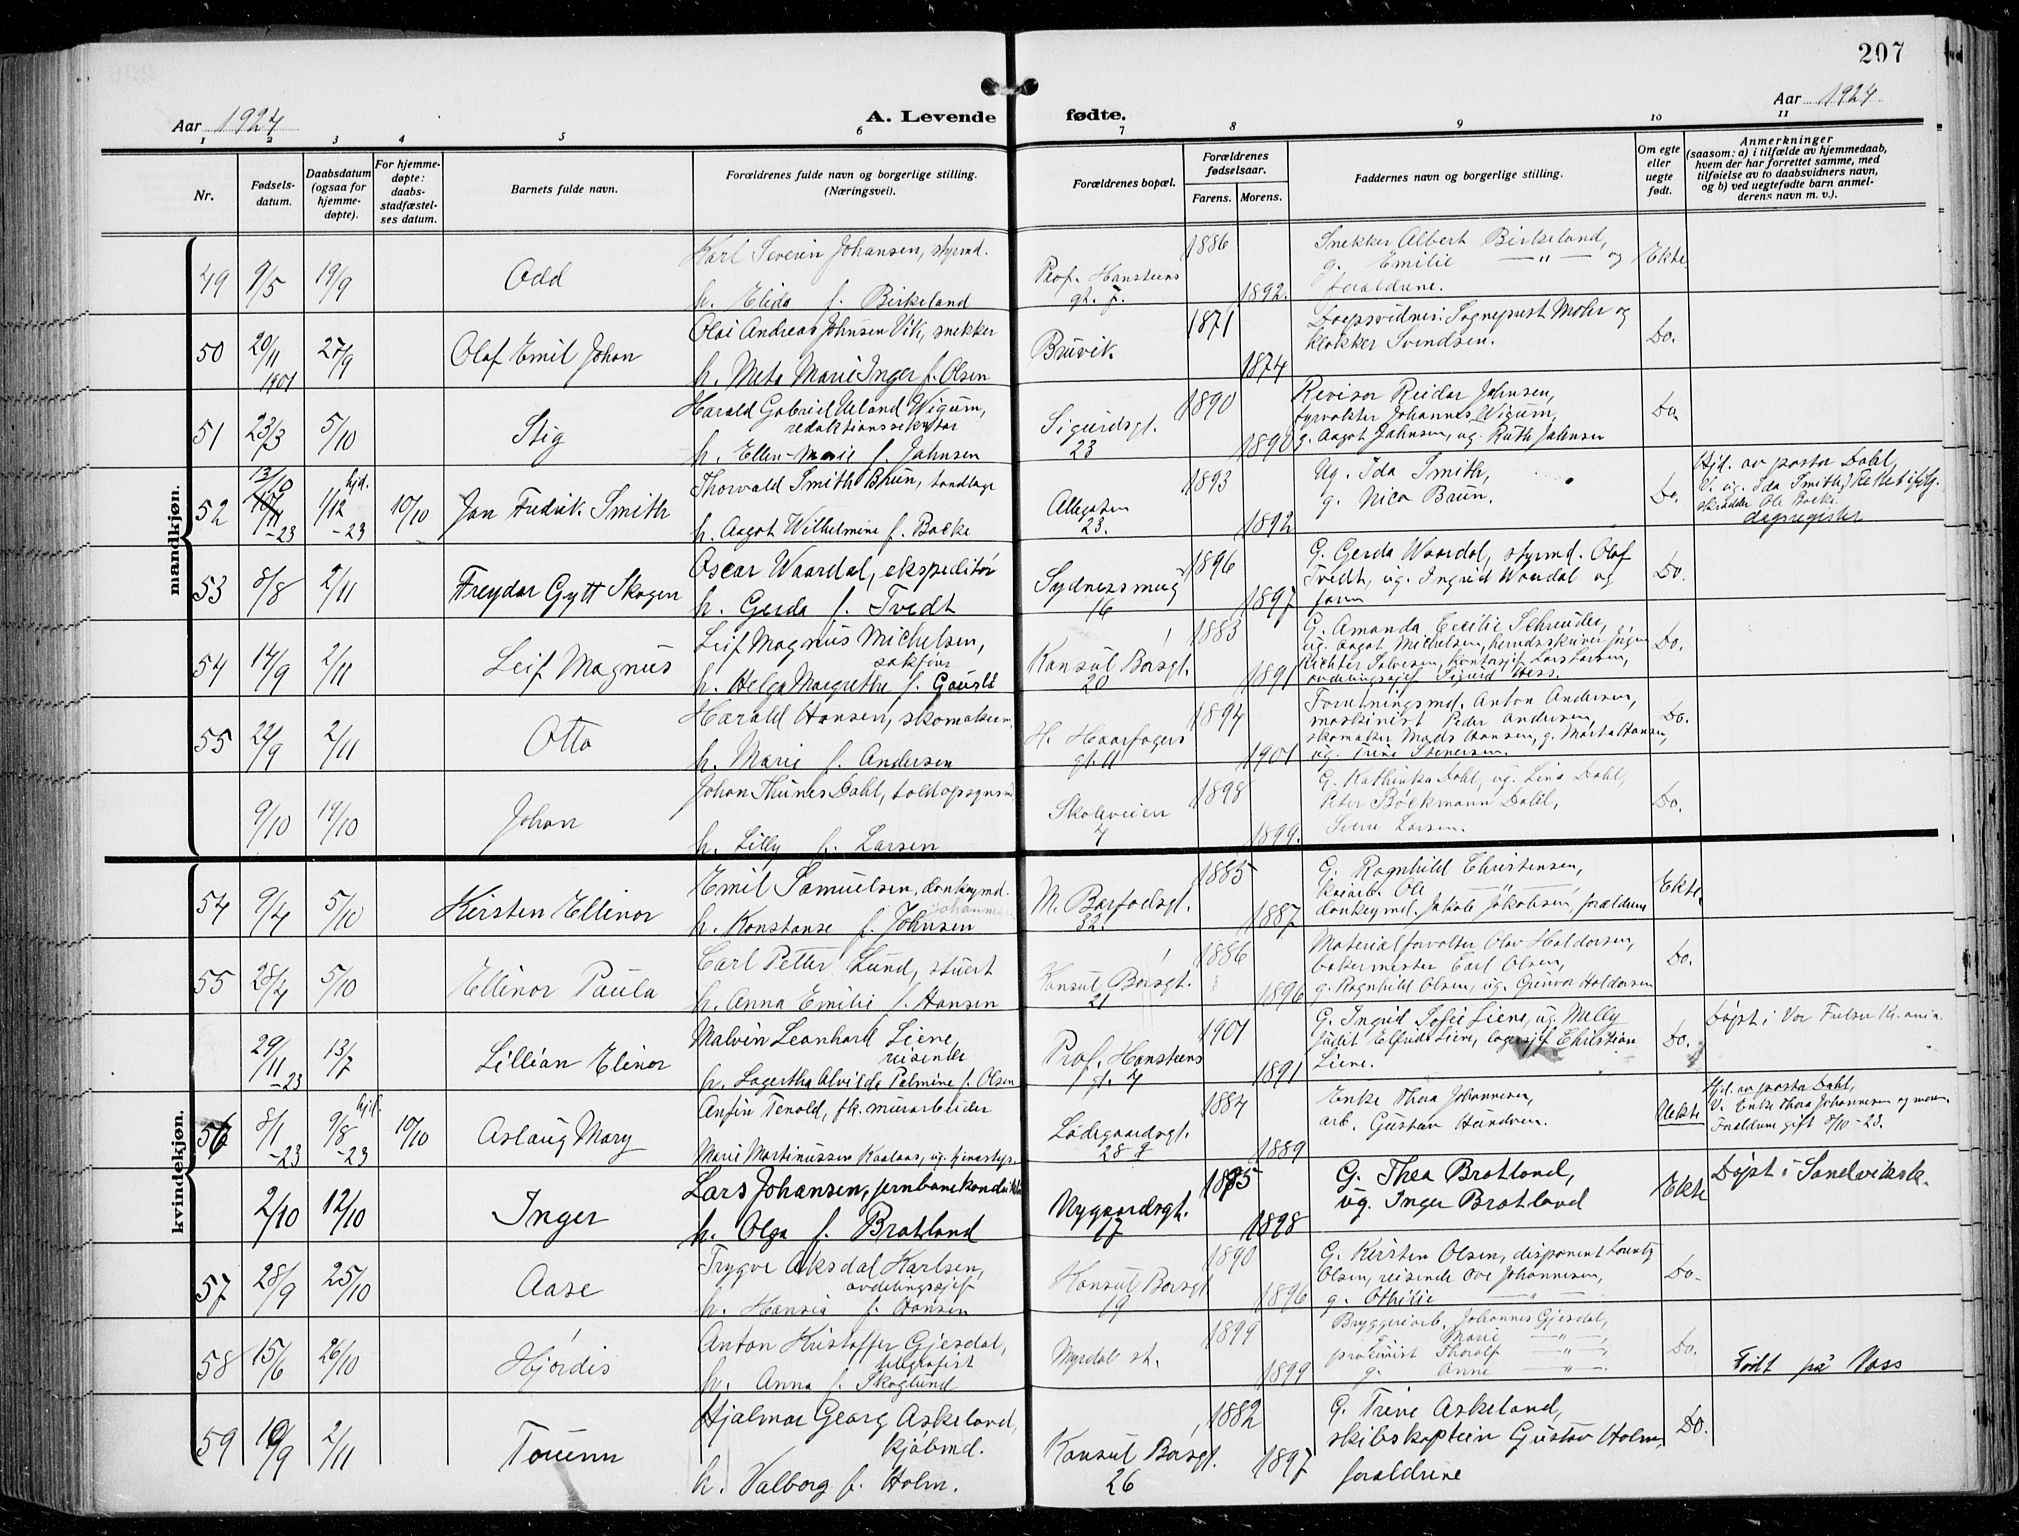 207
Aar 1924
A. Levende fødte.
Aar 1924
1 2 3 4 5 6 7 8 9 10 11
Nr.
Fødsels-
datum.
Daabsdatum
(ogsaa for
hjemme-
døpte).
For hjemme-
døpte:
daabs-
stadfæstel-
ses datum.
Barnets fulde navn.
Forældrenes fulde navn og borgerlige stilling.
(Næringsvei).
Forældrenes bopæl.
Forældrenes
fødselsaar.
Farens. Morens.
Faddernes navn og borgerlige stilling.
Om egte
eller
uegte
født.
Anmerkninger
(saasom: a) i tilfælde av hjemmedaab,
hvem der har forrettet samme, med
tilføielse av to daabsvidners navn,
og b) ved uegtefødte barn anmel-
derens navn m. v.).
mandkjøn.
49 9/5 19/9 Odd
Karl Severin Johansen, styrmd.
h. Elida f. Birkeland
Prof. Hansteens
gt. 7.
1886 1892.
Snekker Albert Birkeland,
g. Emilie — " — og
foraldrene.
Ekte.
50 20/11 1901 27/9 Olaf Emil Johan
Olai Andreas Johnsen Vik, snekker
h. Meta Marie Inger f. Olsen
Bruvik
1871 1874
Daapsvidner: Sogneprest Mohr og
klokker Svendsen.
Do.
51 23/3 5/10 Stig
Harald Gabriel Ueland Wigum,
redaktionssekretær
h. Ellen-Marie f. Johnsen
Sigurdsgt.
23
1890 1890
Revisor Reidar Johnsen,
fyrvokter Johannes Wigum,
g. Aagot Johnsen, ug. Ruth Johnsen
Do.
52 13/10 10/11 -23 hjd. 1/12 -23 10/10 Jan Fredrik Smith
Thorvald Smith Brun, tandlæge
h. Aagot Wilhelmine f. Backe
Allegaten
23.
1893 1892
Ug. Ida Smith,
g. Nica Brun.
Do.
Hjd. av pastor Dahl,
V. ug. Ida Smith,
skrædder Ole Backe
dapregister
53 8/8 2/11 Freydar Gytt Skagen
Oscar Waardal, ekspeditør
h. Gerda f. Tvedt
Sydnessmug
16
1896 1897
G. Gerda Waardal, styrmd. Olaf
Tvedt, ug. Ingrid Waardal og
faren
Do.
54 14/9 2/11 Leif Magnus
Leif Magnus Michelsen,
sakfører
h. Helga Margrethe f.
Konsul Børsgt.
20
1883 1891
G. Amanda Cecilie Schrøder,
ug. Aagot Michelsen, herredsskriver
Richter Salvesen, kontorsjef Lars Larsen,
avdelingssjef Sigurd Hess.
Do.
55 22/9 2/11 Otto
Harald Hansen, skomakerm.
h. Marie f. Andersen
H. Haarfagers
gt. 11
1894 1901
Forretningsmd. Anton Andersen,
maskinist Peder Andersen,
skomaker Mads Hansen, g. Marta Hansen,
ug. Trine Stenersen.
Do.
9/10 19/10 Johan
Johan Thunes Dahl, toldopsynsm
h. Lilly f. Larsen
Skoleveien
4
1898 1899.
G. Kathinka Dahl, ug. Lina Dahl,
Peter Bøckmann Dahl,
Sverre Larsen.
Do.
kvindekjøn.
54 9/4 5/10 Kirsten Ellinor
Emil Samuelsen, donkeymd.
Johannesen
h. Konstanse f. Johnsen
M. Barfodsgt.
32.
1885 1887
G. Ragnhild Christensen,
kaiarb. Ole — " —
donkeymd. Jakob Jakobsen, foraldrene
Ekte.
55 28/4 5/10 Ellinor Paula
Carl Petter Lund, stuert
h. Anna Emilie f. Hansen
Konsul Børsgt.
21
1886 1896
Materialforvalter Olav Haldorsen,
bakermester Carl Olsen,
g. Ragnhild Olsen, ug. Gunvor Haldorsen
Do.
29/11 -23 13/7 Lillian Elinor
Malvin Leonhard Liene,
reisende
h. Lagertha Alvilda Palmine f. Olsen
Prof. Hansteens
gt. 4
1901 1891
G. Ingrid Sofie Liene, ug. Melly
Judit Elfrida Liene, lagersjef Christian
Liene.
Do.
Døpt i Vor Frelser Kr.ania.
56 8/1 -23 hjd. 9/8 -23 10/10 Aslaug Mary
Anfin Tenold, fk. murarbeider
Marie Martinussen Kaalaas, ug.
Lødegaardsgt.
28
1884 1889
Enke Thora Johannesen,
arb. Gustav Hundven.
Uekte
Hjd. av pastor Dahl,
V. Enke Thora Johannesen og moren
Foraldrene gift 8/10 -23.
2/10 12/10 Inger
Lars Johansen, jernbanekonduktør
h. Olga f. Bratland
Nygaardsgt.
17
1895 1898
G. Thea Bratland,
ug. Inger Bratland
Ekte
Døpt i Sandviksk.
57 28/9 25/10 Aase
Trygve Aksdal Karlsen,
avdelingssjef
h. Hansia f. Hansen
Konsul Børsgt
19
1890 1896
G. Kirsten Olsen, disponent Lorentz
Olsen, reisende Ove Johannesen,
g. Othilie "
Do.
58 15/6 26/10 Hjørdis
Anton Kristoffer Gjesdal,
telegrafist
h. Anna f. Skoglund
Myrdal st.
1899 1899
Bryggeriarb. Johannes Gjesdal,
Marie — " —,
Thoralf — " —
g. Anne — " —
Do.
Født på Voss
59 10/9 2/11 Torunn
Hjalmar Georg Askeland,
kjøbmd.
h. Valborg f. Holm.
Konsul Børsgt.
26
1882 1897
G. Trine Askeland,
skibskaptein Gustav Holm,
foraldrene
Do.